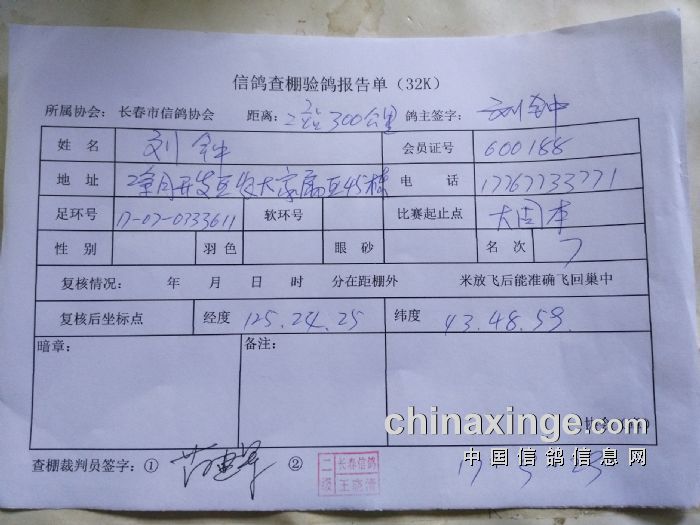 信鸽查棚验鸽报告单（32K）
所属协会：长春市信鸽协会 距离：二站300公里 鸽主签字：刘钟
姓名 刘钟 会员证号 600188
地址 净月开发区农大家属区45栋 电话 17767733771
足环号 17-07-0333611 软环号 比赛起止点 大固本
性别 羽色 眼砂 名次 7
复核情况： 年 月 日 时 分在距棚外 米放飞后能准确飞回巢中
复核后坐标点 经度 125.24.25 纬度 43.48.59.
暗章： 备注：
chinaxinge.com
中国信鸽信息网
查棚裁判员签字：① ② 二级 长春信鸽